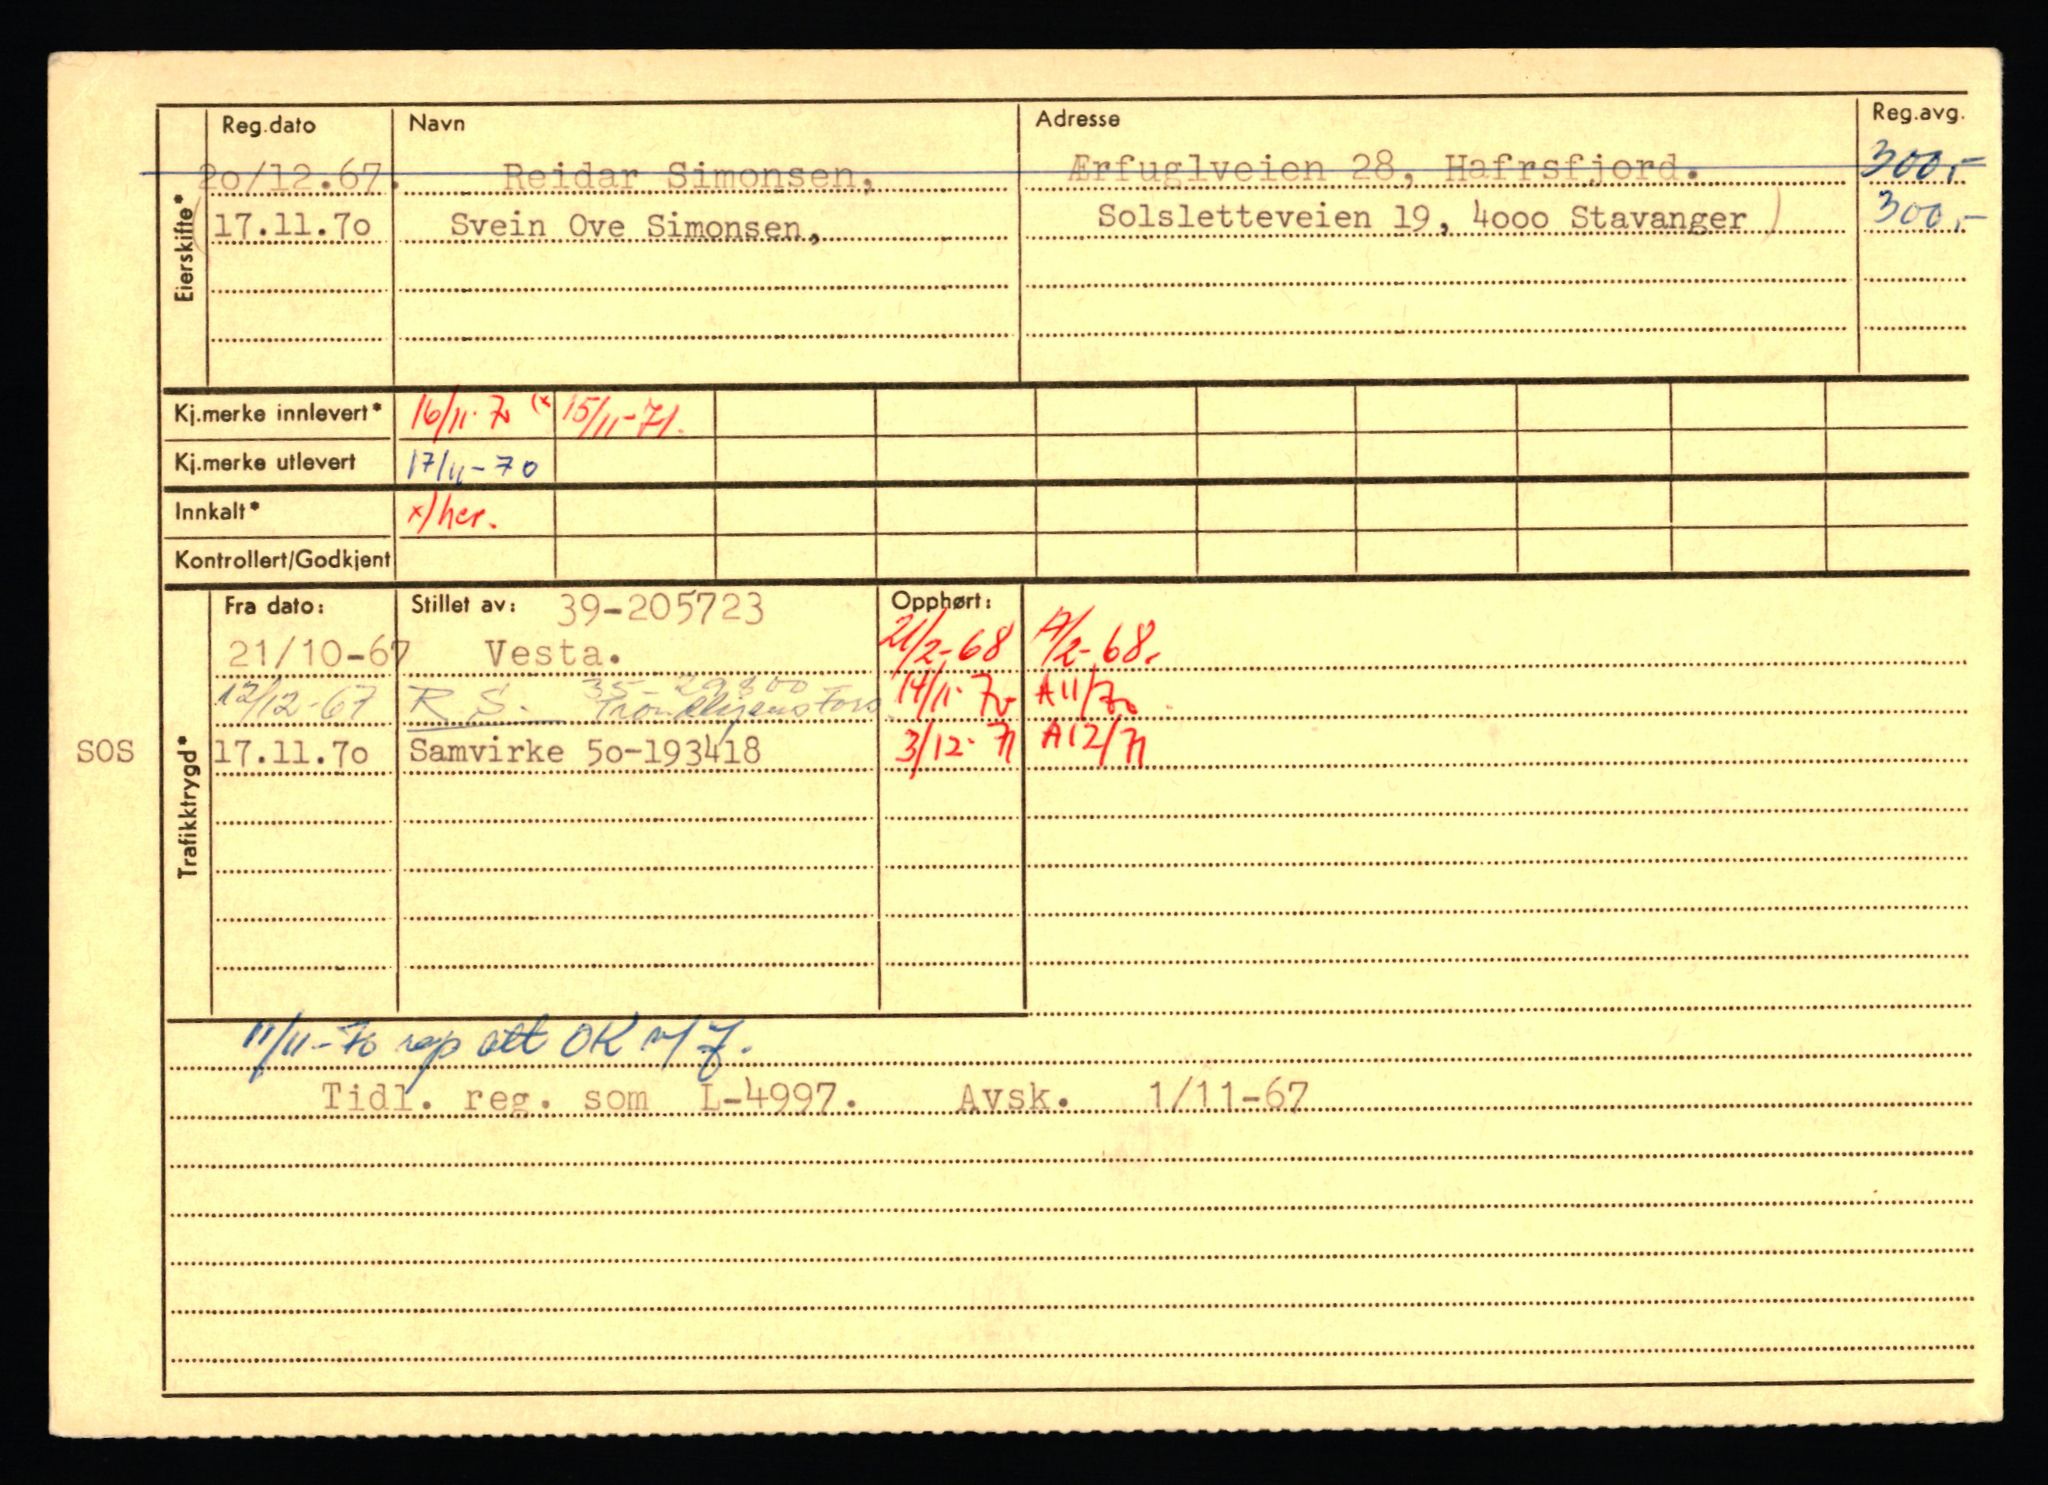 Reg.dato Navn Adresse Reg.avg.
20/12.67. Reidar Simonsen, Ærfuglveien 28, Hafrsfjord. 300,-
17.11.7o Svein Ove Simonsen, Solsletteveien 19, 4ooo Stavanger ) 300,-
Eierskifte*
Kj.merke innlevert* 16/11-70 (x 15/11-71.
Kj.merke utlevert 17/11-70
Innkalt* x/her.
Kontrollert/Godkjent
Trafikktrygd*
Fra dato: Stillet av: 39-205723 Opphørt:
21/10-67 Vesta. 21/2-68 A/2-68.
12/12-67 R.S. 14/11-70 A11/70
SOS 17.11.7o Samvirke 5o-193418 3/12-71 A12/71
11/11-70 rep att OK
Tidl. reg. som L-4997. Avsk. 1/11-67